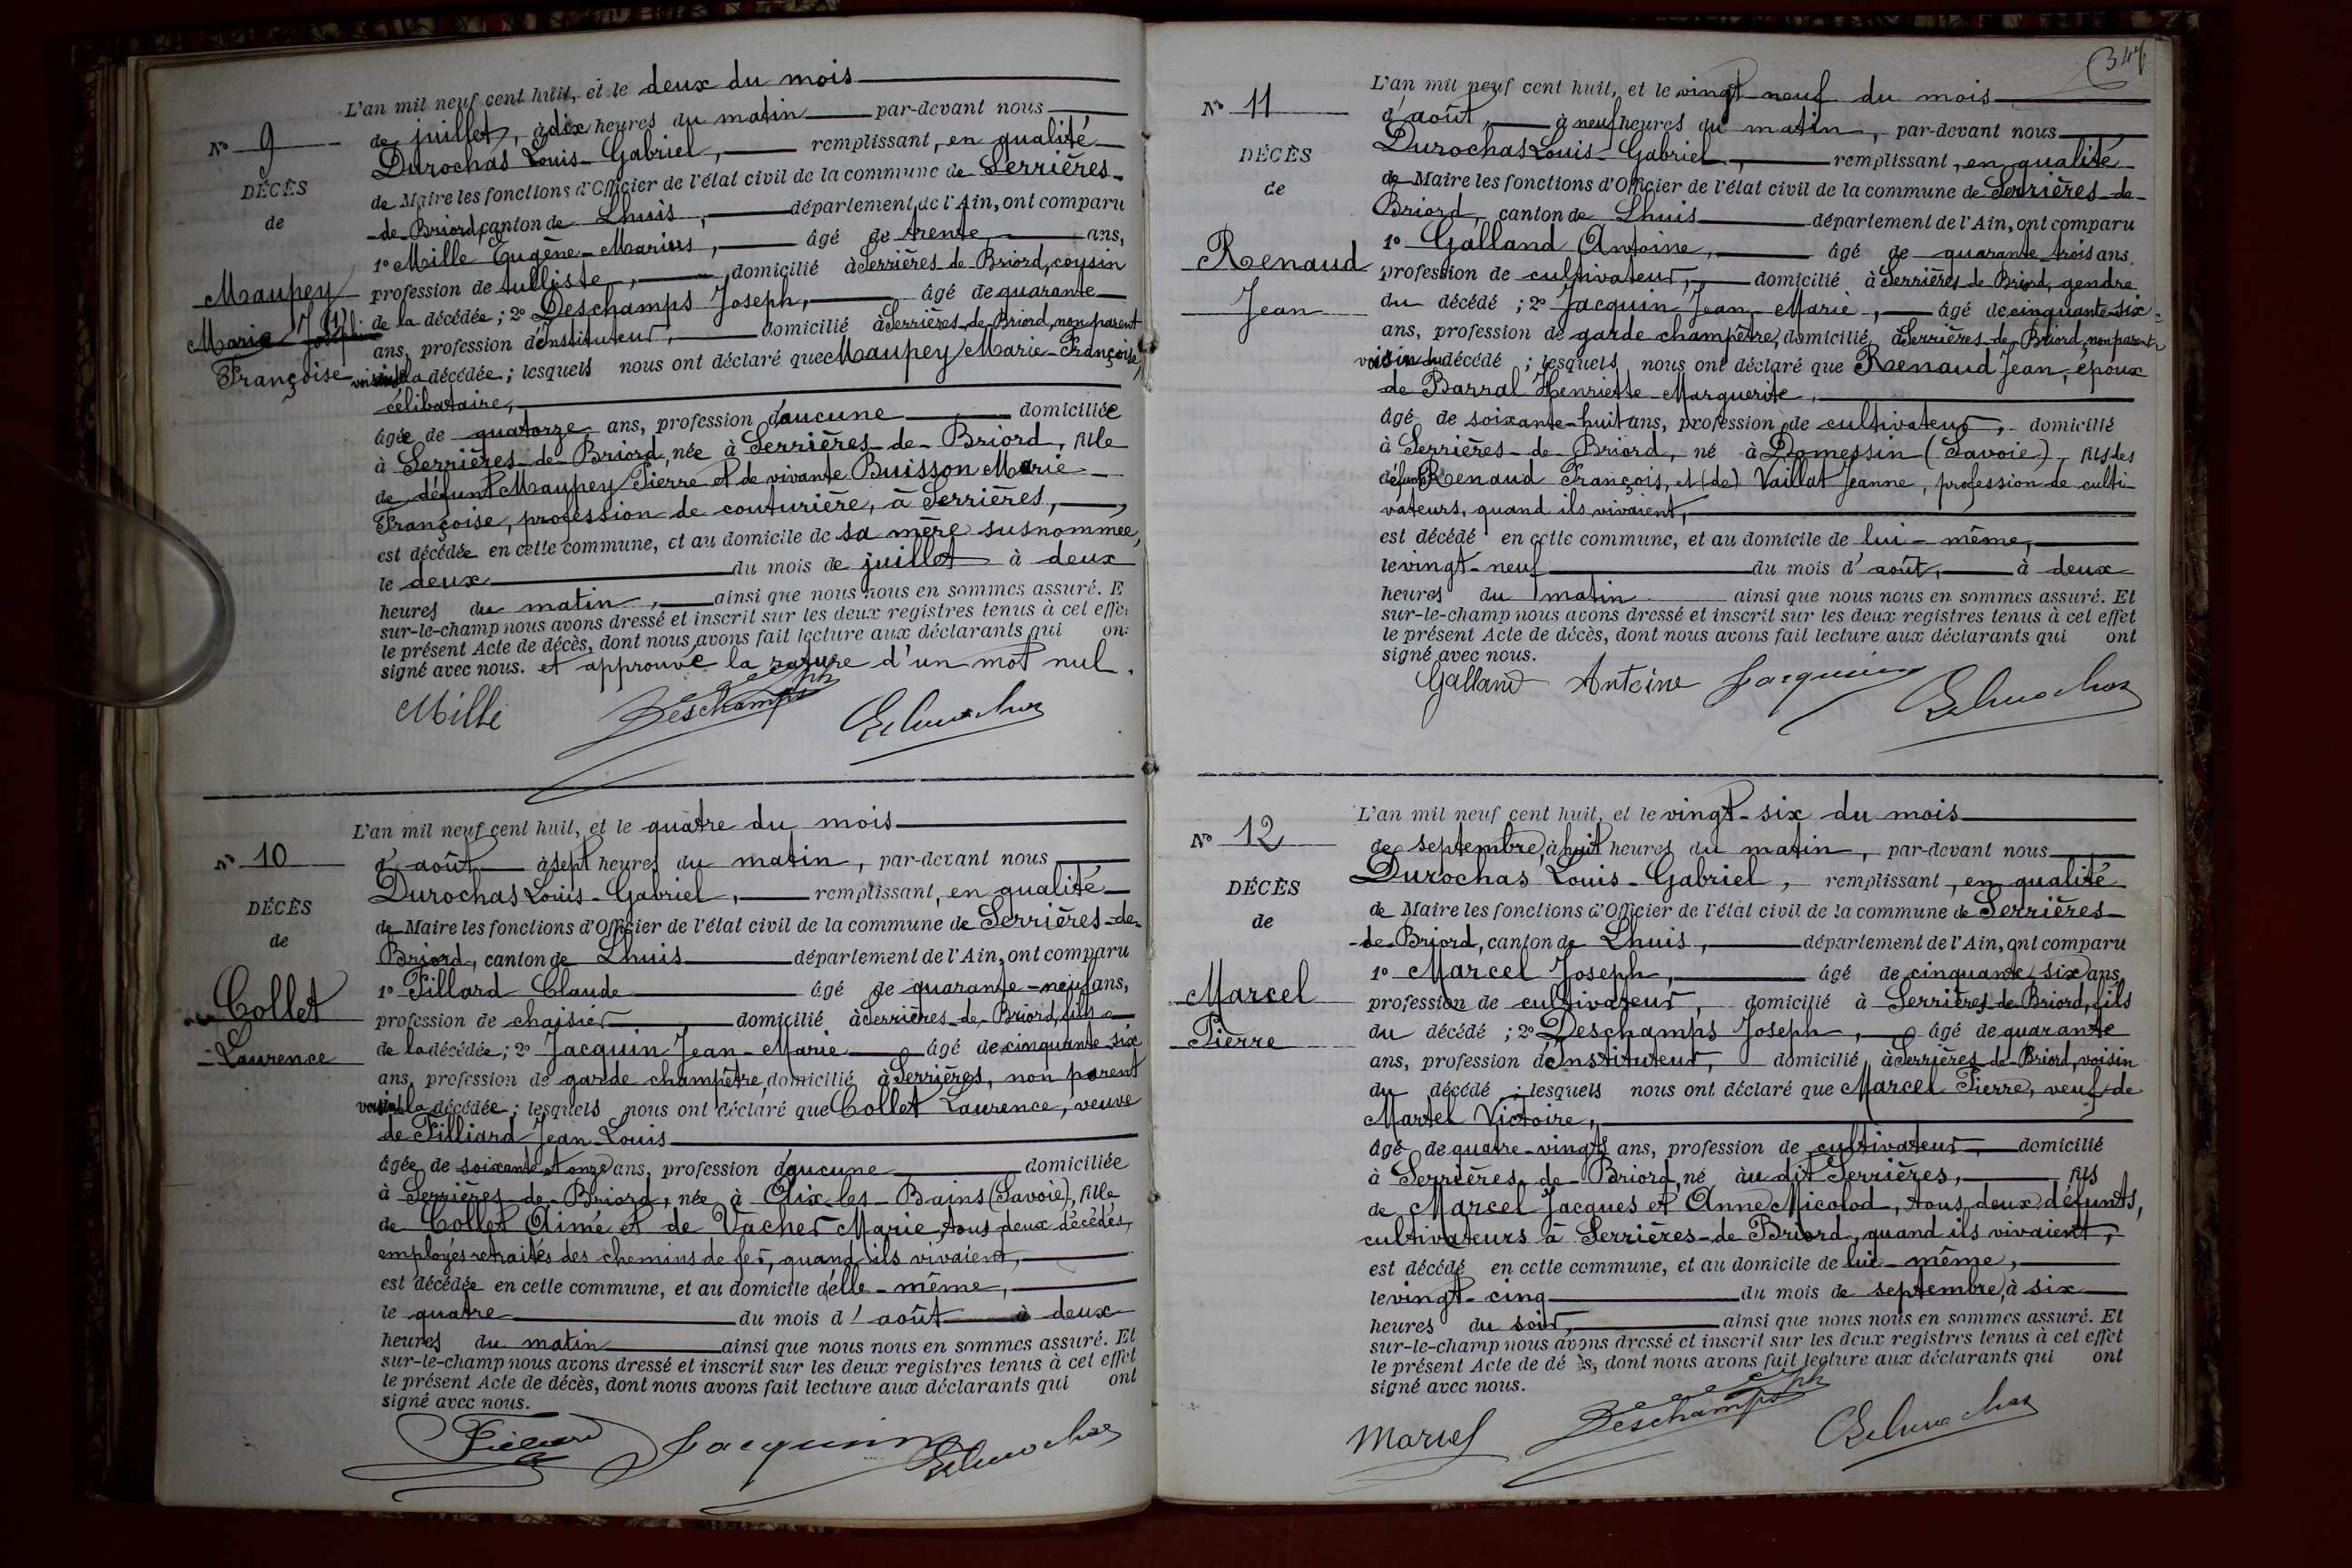 L'an mil neuf cent huit, et le deux du mois
de juillet, à dix heures du matin par-devant nous
Durochas Louis-Gabriel, remplissant, en qualité
de Maire les fonctions d'Officier de l'état civil de la commune de Serrières-
-de-Briord, canton de Lhuis, département de l'Ain, ont comparu
1º Mille Eugène-Marius, âgé de trente ans,
profession de tulliste, domicilié à Serrières-de-Briord, cousin
de la décédée; 2º Deschamps Joseph, âgé de quarante
ans, profession d'instituteur, domicilié à Serrières-de-Briord, non parent
voisin de la décédée; lesquels nous ont déclaré que Maupey Marie-Françoise,
célibataire,
âgée de quatorze ans, profession d'aucune domiciliée
à Serrières-de-Briord, née à Serrières-de-Briord, fille
de défunt Maupey Pierre et de vivante Buisson Marie-
Françoise, profession de couturière, à Serrières,
est décédée en cette commune, et au domicile de sa mère susnommée,
le deux du mois de juillet à deux
heures du matin, ainsi que nous nous en sommes assuré. E
sur-le-champ nous avons dressé et inscrit sur les deux registres tenus à cet effe
le présent Acte de décès, dont nous avons fait lecture aux déclarants qui on
signé avec nous. et approuvé la rature d'un mot nul.
Mille Deschamps Joseph Durochas
Nº 9
DÉCÈS
de
Maupey
Marie Joséphine (1)
Françoise
L'an mil neuf cent huit, et le quatre du mois
d'août à sept heures du matin, par-devant nous
Durochas Louis-Gabriel, remplissant, en qualité
de Maire les fonctions d'Officier de l'état civil de la commune de Serrières-de-
Briord, canton de Lhuis département de l'Ain, ont comparu
1º Pillard Claude âgé de quarante-neuf ans,
profession de chaisier domicilié à Serrières-de-Briord, fils
de la décédée; 2º Jacquin Jean-Marie âgé de cinquante-six
ans, profession de garde champêtre, domicilié à Serrières, non parent
voisin de la décédée; lesquels nous ont déclaré que Collet Laurence, veuve
de Pilliard Jean-Louis
âgée de soixante et onze ans, profession d'aucune domiciliée
à Serrières-de-Briord, née à Aix-les-Bains (Savoie), fille
de Collet Aimé et de Vacher Marie, tous deux décédés,
employés retraités des chemins de fer, quand ils vivaient,
est décédée en cette commune, et au domicile d'elle-même,
le quatre du mois d'août à deux
heures du matin ainsi que nous nous en sommes assuré. Et
sur-le-champ nous avons dressé et inscrit sur les deux registres tenus à cet effet
le présent Acte de décès, dont nous avons fait lecture aux déclarants qui ont
signé avec nous.
Jacquin Durochas
Nº 10
DÉCÈS
de
Collet
Laurence
347
L'an mil neuf cent huit, et le vingt-neuf du mois
d'août, à neuf heures du matin, par-devant nous
Durochas Louis-Gabriel, remplissant, en qualité
de Maire les fonctions d'Officier de l'état civil de la commune de Serrières-de-
Briord, canton de Lhuis département de l'Ain, ont comparu
1º Galland Antoine, âgé de quarante-trois ans,
profession de cultivateur, domicilié à Serrières-de-Briord, gendre
du décédé; 2º Jacquin Jean-Marie, âgé de cinquante-six
ans, profession de garde champêtre, domicilié à Serrières-de-Briord, non parent
voisin du décédé; lesquels nous ont déclaré que Renaud Jean, époux
de Barral Henriette-Marguerite,
âgé de soixante-huit ans, profession de cultivateur, domicilié
à Serrières-de-Briord, né à Domessin (Savoie), fils des
défunts Renaud François, et (de) Vaillat Jeanne, profession de culti-
vateurs, quand ils vivaient,
est décédé en cette commune, et au domicile de lui-même,
le vingt-neuf du mois d'août, à deux
heures du matin ainsi que nous nous en sommes assuré. Et
sur-le-champ nous avons dressé et inscrit sur les deux registres tenus à cet effet
le présent Acte de décès, dont nous avons fait lecture aux déclarants qui ont
signé avec nous.
Galland Antoine Jacquin Durochas
Nº 11
DÉCÈS
de
Renaud
Jean
L'an mil neuf cent huit, et le vingt-six du mois
de septembre, à huit heures du matin, par-devant nous
Durochas Louis-Gabriel, remplissant, en qualité
de Maire les fonctions d'Officier de l'état civil de la commune de Serrières-
-de-Briord, canton de Lhuis, département de l'Ain, ont comparu
1º Marcel Joseph, âgé de cinquante-six ans,
profession de cultivateur, domicilié à Serrières-de-Briord, fils
du décédé; 2º Deschamps Joseph, âgé de quarante
ans, profession d'Instituteur, domicilié à Serrières-de-Briord, voisin
du décédé; lesquels nous ont déclaré que Marcel Pierre, veuf de
Martel Victoire,
âgé de quatre-vingts ans, profession de cultivateur, domicilié
à Serrières-de-Briord, né au dit Serrières, fils
de Marcel Jacques et Anne Micolod, tous deux défunts,
cultivateurs à Serrières-de Briord, quand ils vivaient,
est décédé en cette commune, et au domicile de lui-même,
le vingt-cinq du mois de septembre, à six
heures du soir, ainsi que nous nous en sommes assuré. Et
sur-le-champ nous avons dressé et inscrit sur les deux registres tenus à cet effet
le présent Acte de dé ès, dont nous avons fait lecture aux déclarants qui ont
signé avec nous.
Marcel Deschamps Joseph Durochas
Nº 12
DÉCÈS
de
Marcel
Pierre